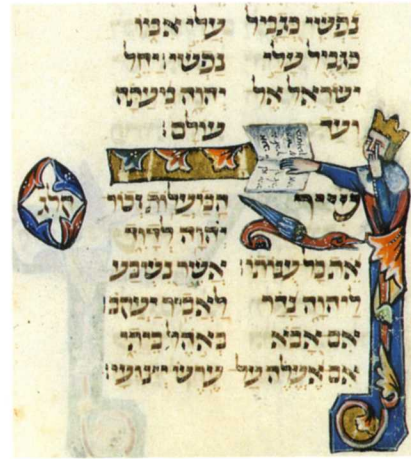 נפשי כגמל עלי אמו
כגמל עלי נפשי יחל
ישראל אל יהוה מעתה
ועד עולם
שיר המעלות זכור
יהוה לדוד
את כל ענותו אשר נשבע
ליהוה נדר לאביר יעקב
אם אבא באהל ביתי
אם אעלה על ערש יצועי